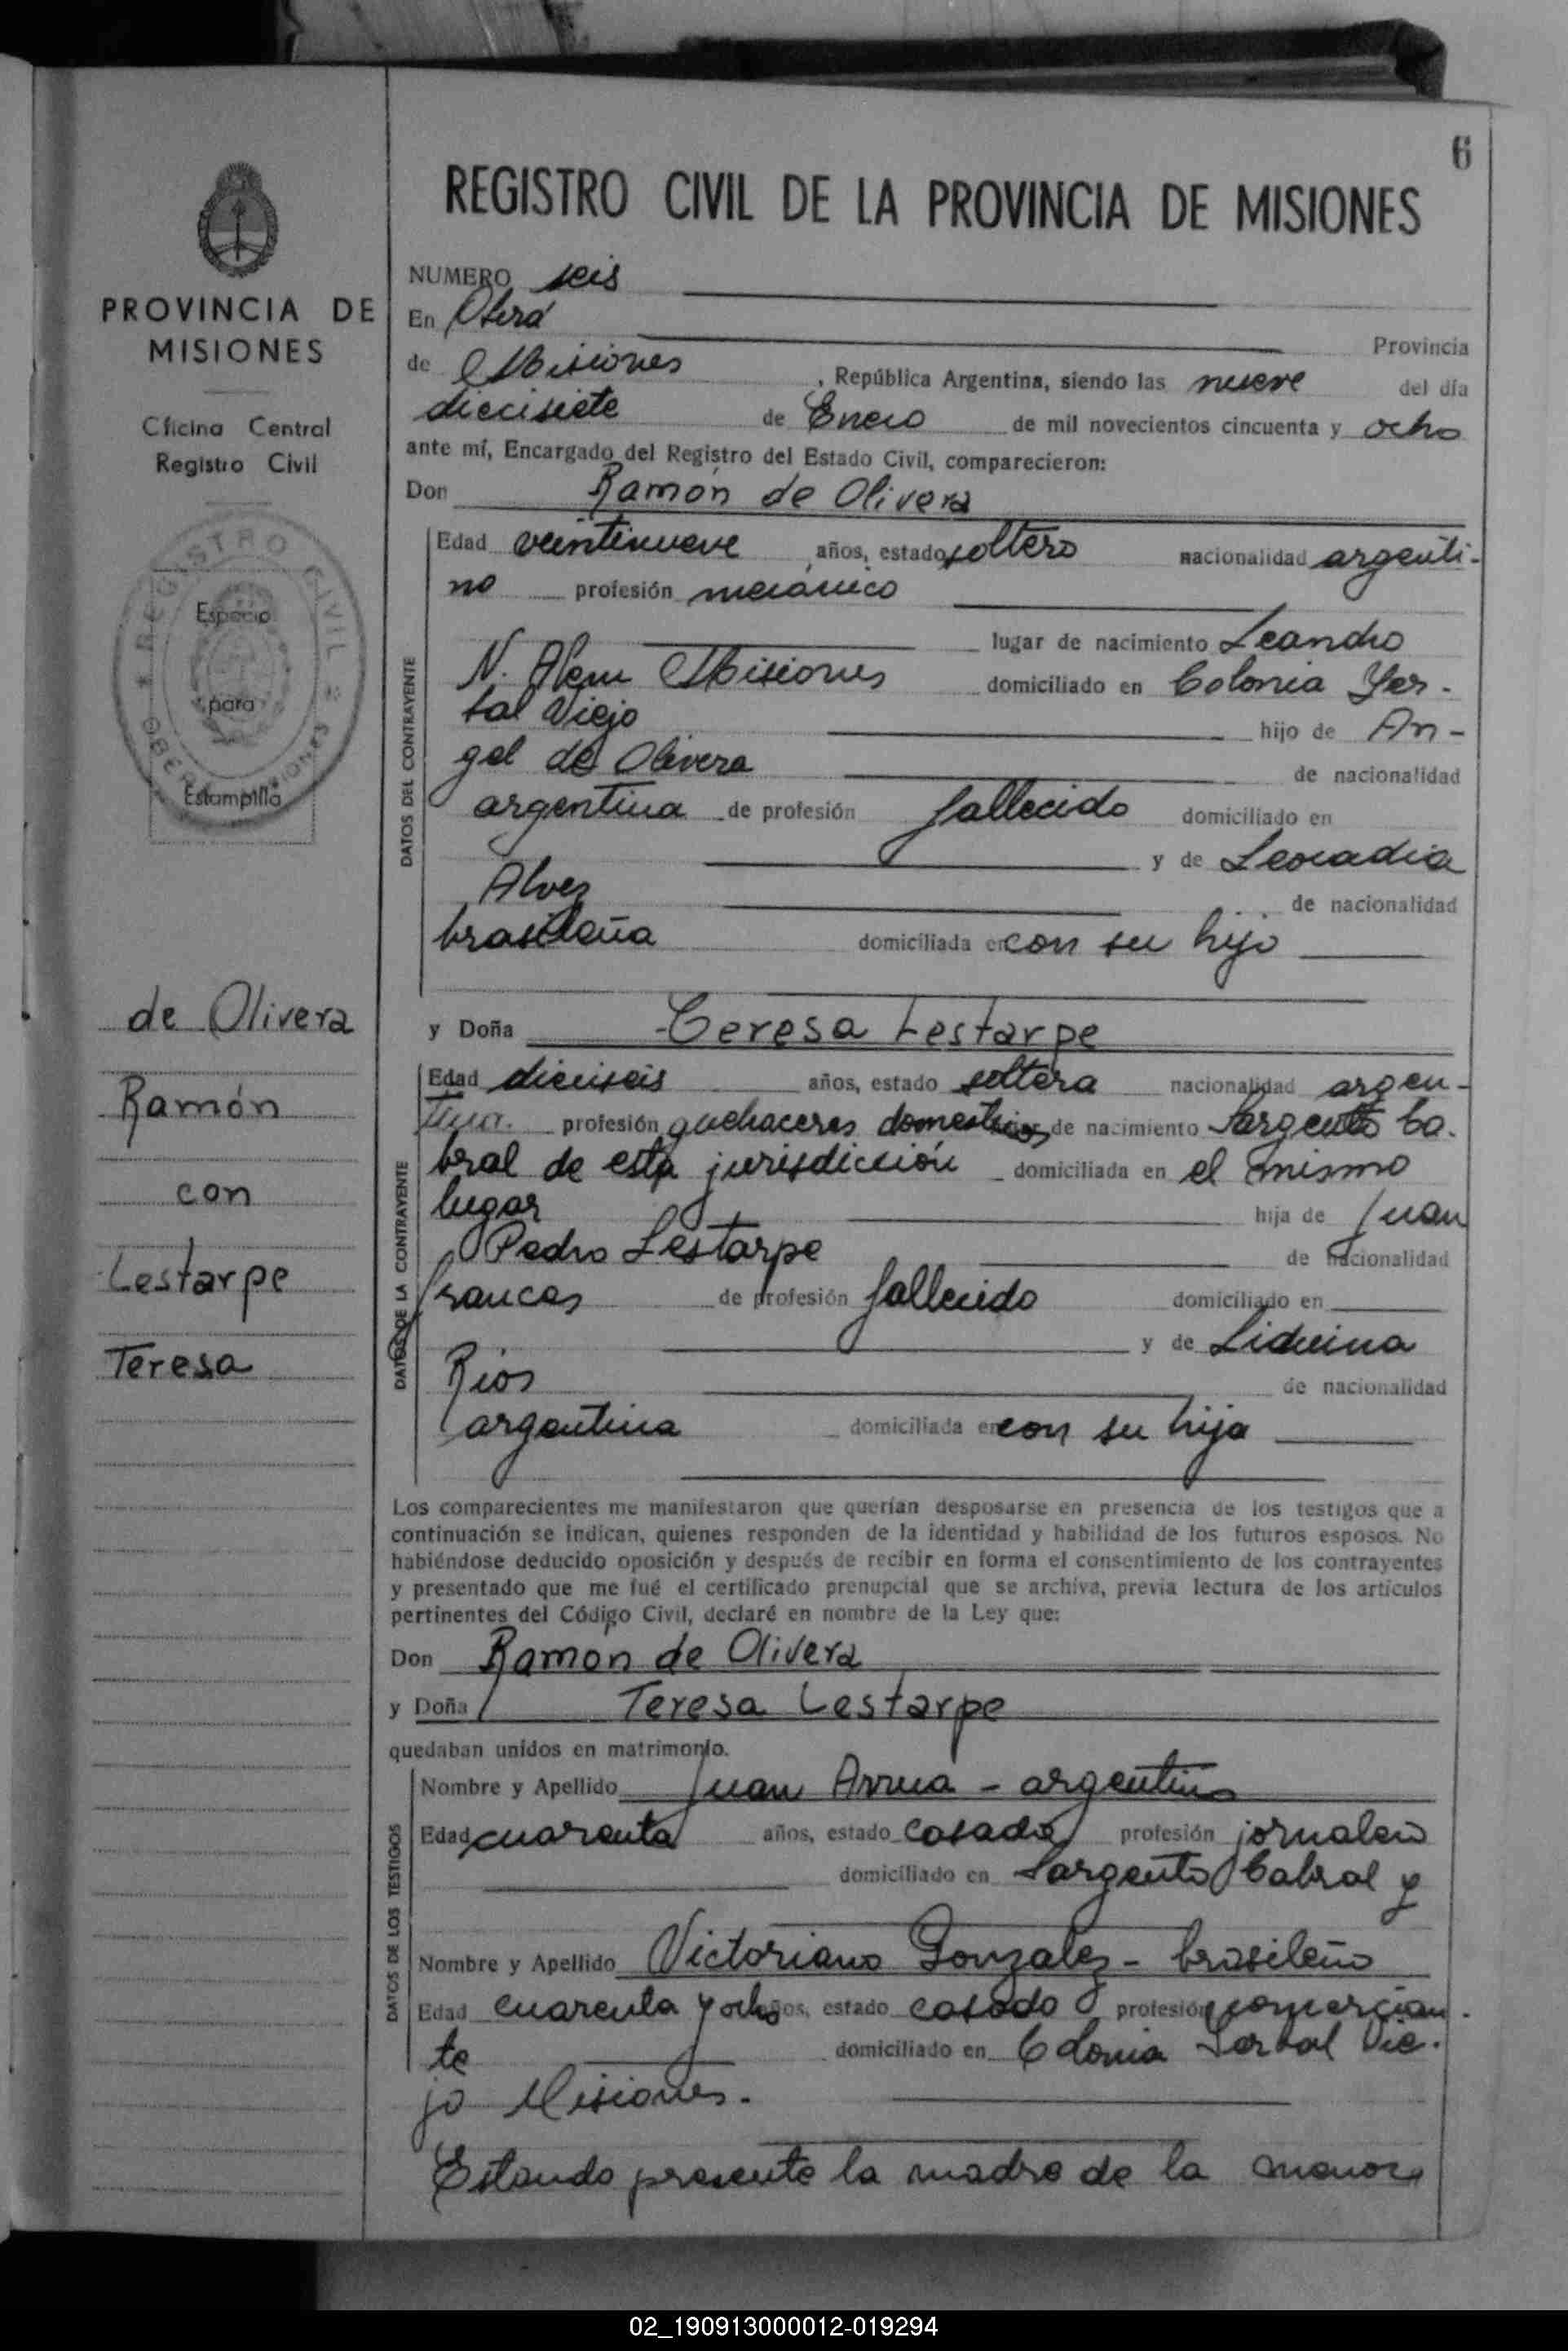 6
REGISTRO CIVIL DE LA PROVINCIA DE MISIONES
PROVINCIA DE
MISIONES
Oficina Central
Registro Civil
REGISTRO CIVIL
OBERA MISIONES
Espacio
para
Estampilla
de Olivera
Ramón
con
Lestarpe
Teresa
NUMERO seis
En Oberá
Provincia
de Misiones, República Argentina, siendo las nueve del día
diecisiete de Enero de mil novecientos cincuenta y ocho
ante mí, Encargado del Registro del Estado Civil, comparecieron:
Don Ramón de Olivera
DATOS DEL CONTRAYENTE
Edad veintinueve años, estado soltero nacionalidad argenti-
no profesión mecánico
lugar de nacimiento Leandro
N. Alem Misiones domiciliado en Colonia Yer-
bal Viejo hijo de An-
gel de Olivera de nacionalidad
argentina de profesión fallecido domiciliado en
y de Leocadia
Alvez de nacionalidad
brasileña domiciliada en con su hijo
y Doña Teresa Lestarpe
DATOS DE LA CONTRAYENTE
Edad dieciseis años, estado soltera nacionalidad argen-
tina. profesión quehaceres domesticos de nacimiento Sargento Ca-
bral de esta jurisdicción domiciliada en el mismo
lugar hija de Juan
Pedro Lestarpe de nacionalidad
francas de profesión fallecido domiciliado en
y de Liduina
Rios de nacionalidad
argentina domiciliada en con su hija
Los comparecientes me manifestaron que querían desposarse en presencia de los testigos que a
continuación se indican, quienes responden de la identidad y habilidad de los futuros esposos. No
habiéndose deducido oposición y después de recibir en forma el consentimiento de los contrayentes
y presentado que me fué el certificado prenupcial que se archiva, previa lectura de los artículos
pertinentes del Código Civil, declaré en nombre de la Ley que:
Don Ramón de Olivera
y Doña Teresa Lestarpe
quedaban unidos en matrimonio.
DATOS DE LOS TESTIGOS
Nombre y Apellido Juan Arrua - argentino
Edad cuarenta años, estado casado profesión jornalero
domiciliado en Sargento Cabral y
Nombre y Apellido Victoriano Gonzalez - brasileño
Edad cuarenta y ocho años, estado casado profesión comercian-
te domiciliado en Colonia Yerbal Vie-
jo Misiones.
Estando presente la madre de la menor
02_190913000012-019294